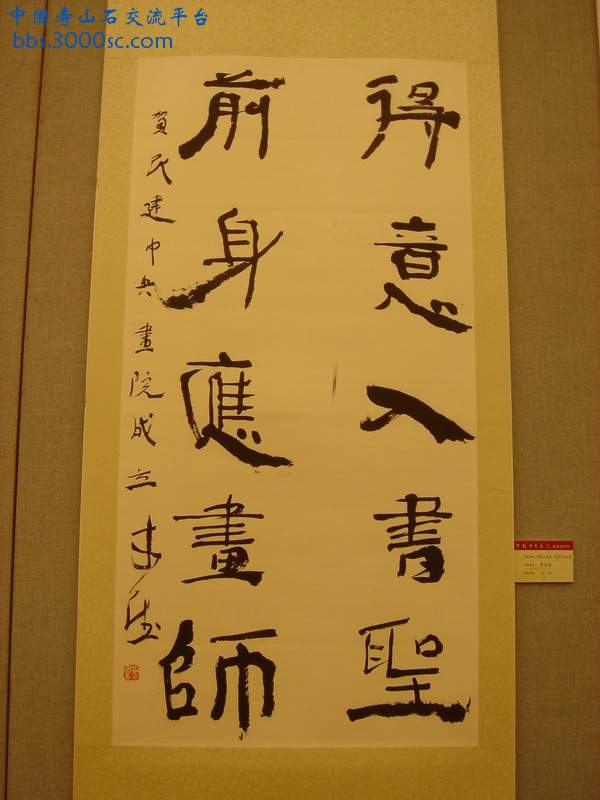 中国寿山石交流平台
bbs.3000sc.com
得意入書聖
前身應畫師
賀民建中央畫院成立